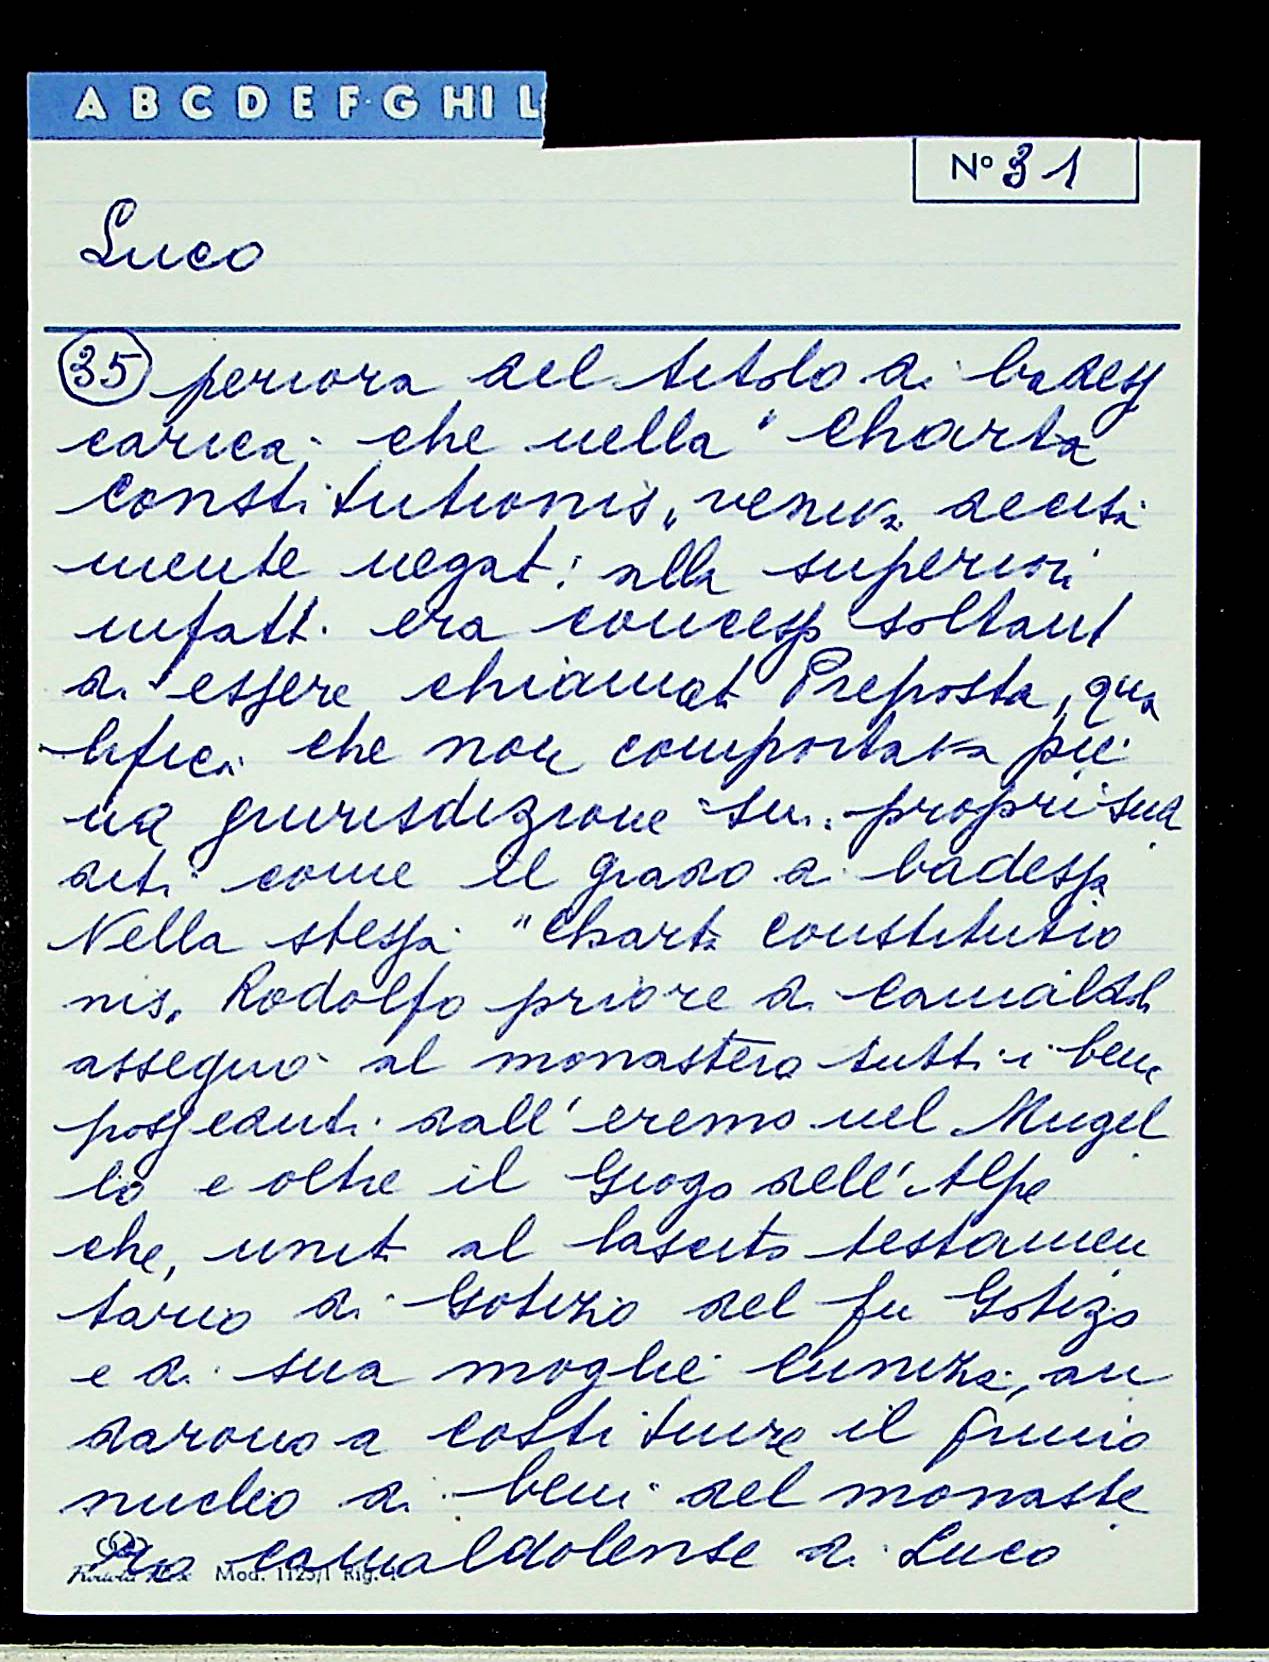 A B C D E F G H I L
Nº 31
Luco
35 persona del titolo di badessa
carica che nella "Charta
Constitutionis" veniva decisa
mente negata: alla superiora
infatti era concesso soltanto
di essere chiamata Preposta, qua
lifica che non comportava pie
na giurisdizione sui propri sud
diti come il grado di badessa
Nella stessa "Charta constitutio
nis" Rodolfo priore di Camaldoli
assegnò al monastero tutti i beni
posseduti dall'eremo nel Mugel
lo e oltre il Giogo dell'Alpe
che, uniti al lascito testamen
tario di Gotizio del fu Gotizo
e di sua moglie Cunizza, an
darono a costituire il primo
nucleo di beni del monaste
ro camaldolense di Luco
Mod. 1125/1 Rig.